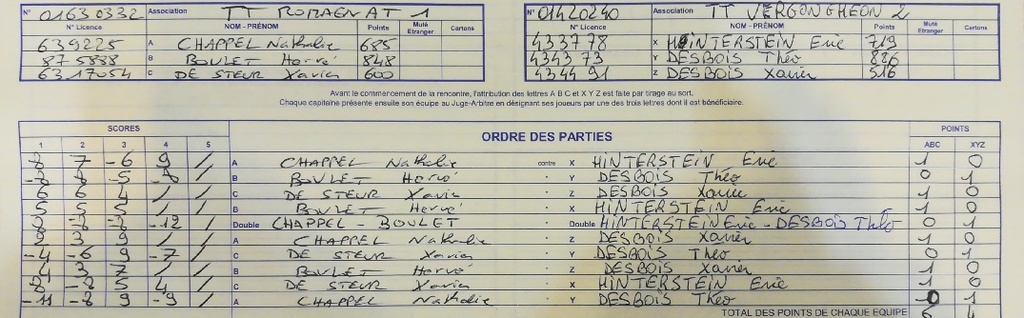 N° 01630332 Association TT ROMAGNAT 1 N° 01420240 Association TT VERGONGHEON 2
N° Licence NOM - PRÉNOM Points Muté Etranger Cartons N° Licence NOM - PRÉNOM Points Muté Etranger Cartons
639225 A CHAPPEL Nathalie 685 433778 X HINTERSTEIN Eric 719
875838 B BOULET Hervé 848 434373 Y DESBOIS Théo 826
6317054 C DE STEUR Xavier 600 434491 Z DESBOIS Xavier 516
Avant le commencement de la rencontre, l'attribution des lettres A B C et X Y Z est faite par tirage au sort.
Chaque capitaine présente ensuite son équipe au Juge-Arbitre en désignant ses joueurs par une des trois lettres dont il est bénéficiaire.
SCORES ORDRE DES PARTIES POINTS
1 2 3 4 5 ABC XYZ
7 -6 9 / A CHAPPEL Nathalie contre X HINTERSTEIN Eric 1 0
B BOULET Hervé " Y DESBOIS Théo 0 1
6 6 4 / / C DE STEUR Xavier " Z DESBOIS Xavier 1 0
5 5 / / B BOULET Hervé " X HINTERSTEIN Eric 1 0
-12 / Double CHAPPEL - BOULET Double HINTERSTEIN Eric - DESBOIS Théo 0 1
3 9 / / A CHAPPEL Nathalie " Z DESBOIS Xavier 1 0
-4 -6 9 -7 / C DE STEUR Xavier " Y DESBOIS Theo 0 1
4 3 7 / / B BOULET Hervé " Z DESBOIS Xavier 1 0
-8 5 4 / C DE STEUR Xavier " X HINTERSTEIN Eric 1 0
-11 -8 9 -9 / A CHAPPEL Nathalie " Y DESBOIS Théo 0 1
TOTAL DES POINTS DE CHAQUE EQUIPE 6 4